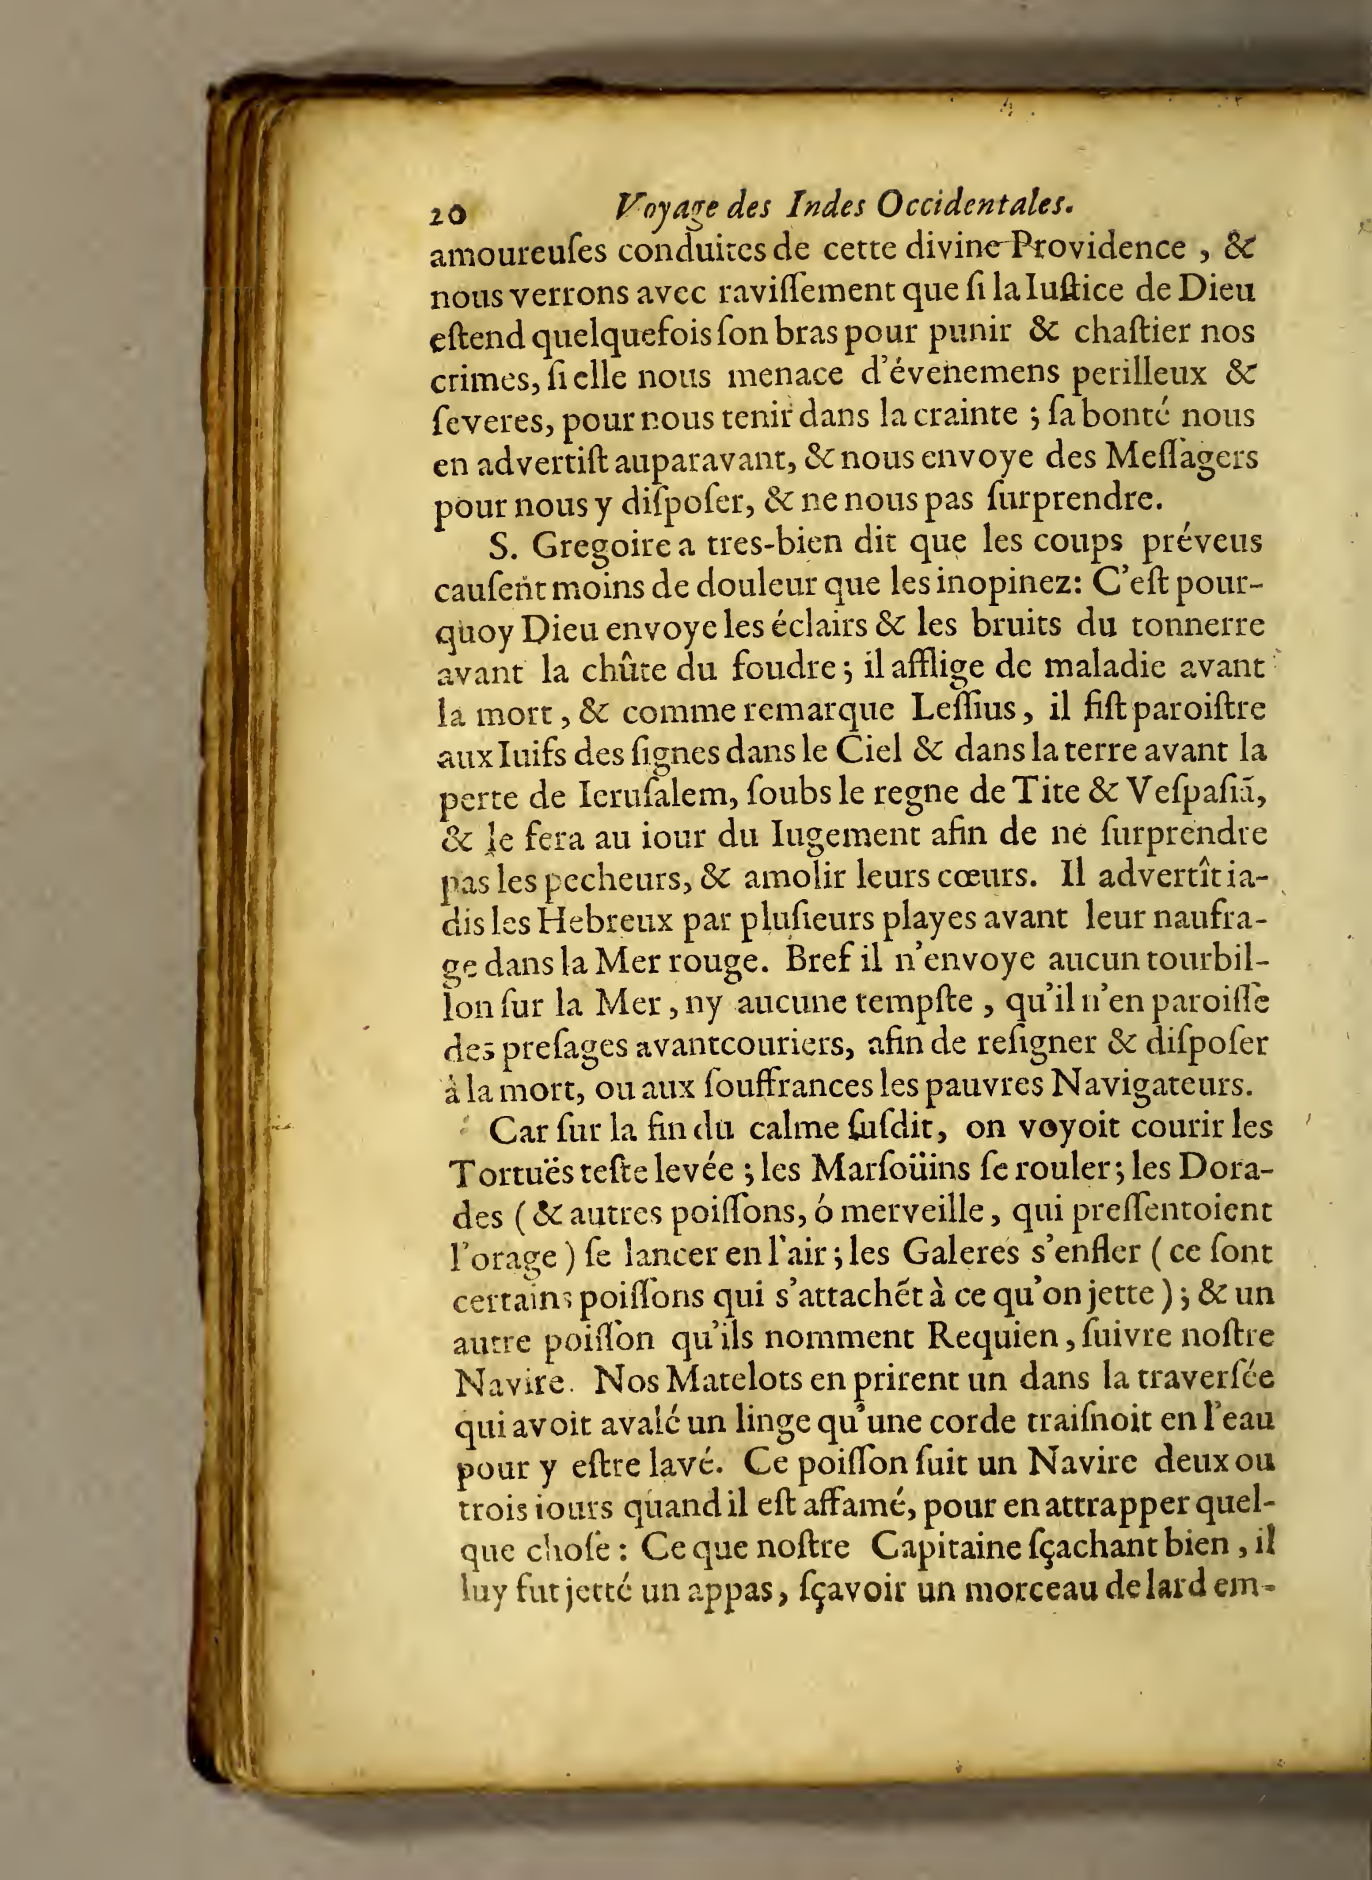 20 Voyage des Indes Occidentales.
amoureuſes conduites de cette divine Providence , &
nous verrons avec raviſſement que ſi la Iuſtice de Dieu
eſtend quelquefois ſon bras pour punir & chaſtier nos
crimes, ſi elle nous menace d'évenemens perilleux &
ſeveres, pour nous tenir dans la crainte ; ſa bonté nous
en advertiſt auparavant, & nous envoye des Meſſagers
pour nous y diſpoſer, & ne nous pas ſurprendre.
S. Gregoire a tres-bien dit que les coups préveus
cauſent moins de douleur que les inopinez: C'eſt pour-
quoy Dieu envoye les éclairs & les bruits du tonnerre
avant la chûte du foudre ; il afflige de maladie avant
la mort , & comme remarque Leſſius , il fiſt paroiſtre
aux Iuifs des ſignes dans le Ciel & dans la terre avant la
perte de Ieruſalem, ſoubs le regne de Tite & Veſpaſiã,
& le fera au iour du Iugement afin de ne ſurprendre
pas les pecheurs, & amolir leurs cœurs. Il advertît ia-
dis les Hebreux par pluſieurs playes avant leur naufra-
ge dans la Mer rouge. Bref il n'envoye aucun tourbil-
lon ſur la Mer , ny aucune tempſte , qu'il n'en paroiſſe
des preſages avantcouriers, afin de reſigner & diſpoſer
à la mort, ou aux ſouffrances les pauvres Navigateurs.
Car ſur la fin du calme ſuſdit, on voyoit courir les
Tortuës teſte levée ; les Marſoüins ſe rouler ; les Dora-
des ( & autres poiſſons, ó merveille , qui preſſentoient
l'orage ) ſe lancer en l'air ; les Galeres s'enfler ( ce ſont
certains poiſſons qui s'attachẽt à ce qu'on jette ) ; & un
autre poiſſon qu'ils nomment Requien , ſuivre noſtre
Navire. Nos Matelots en prirent un dans la traverſée
qui avoit avalé un linge qu'une corde traiſnoit en l'eau
pour y eſtre lavé. Ce poiſſon ſuit un Navire deux ou
trois iours quand il eſt affamé, pour en attrapper quel-
que choſe : Ce que noſtre Capitaine ſçachant bien , il
luy fut jetté un appas, ſçavoir un morceau de lard em-